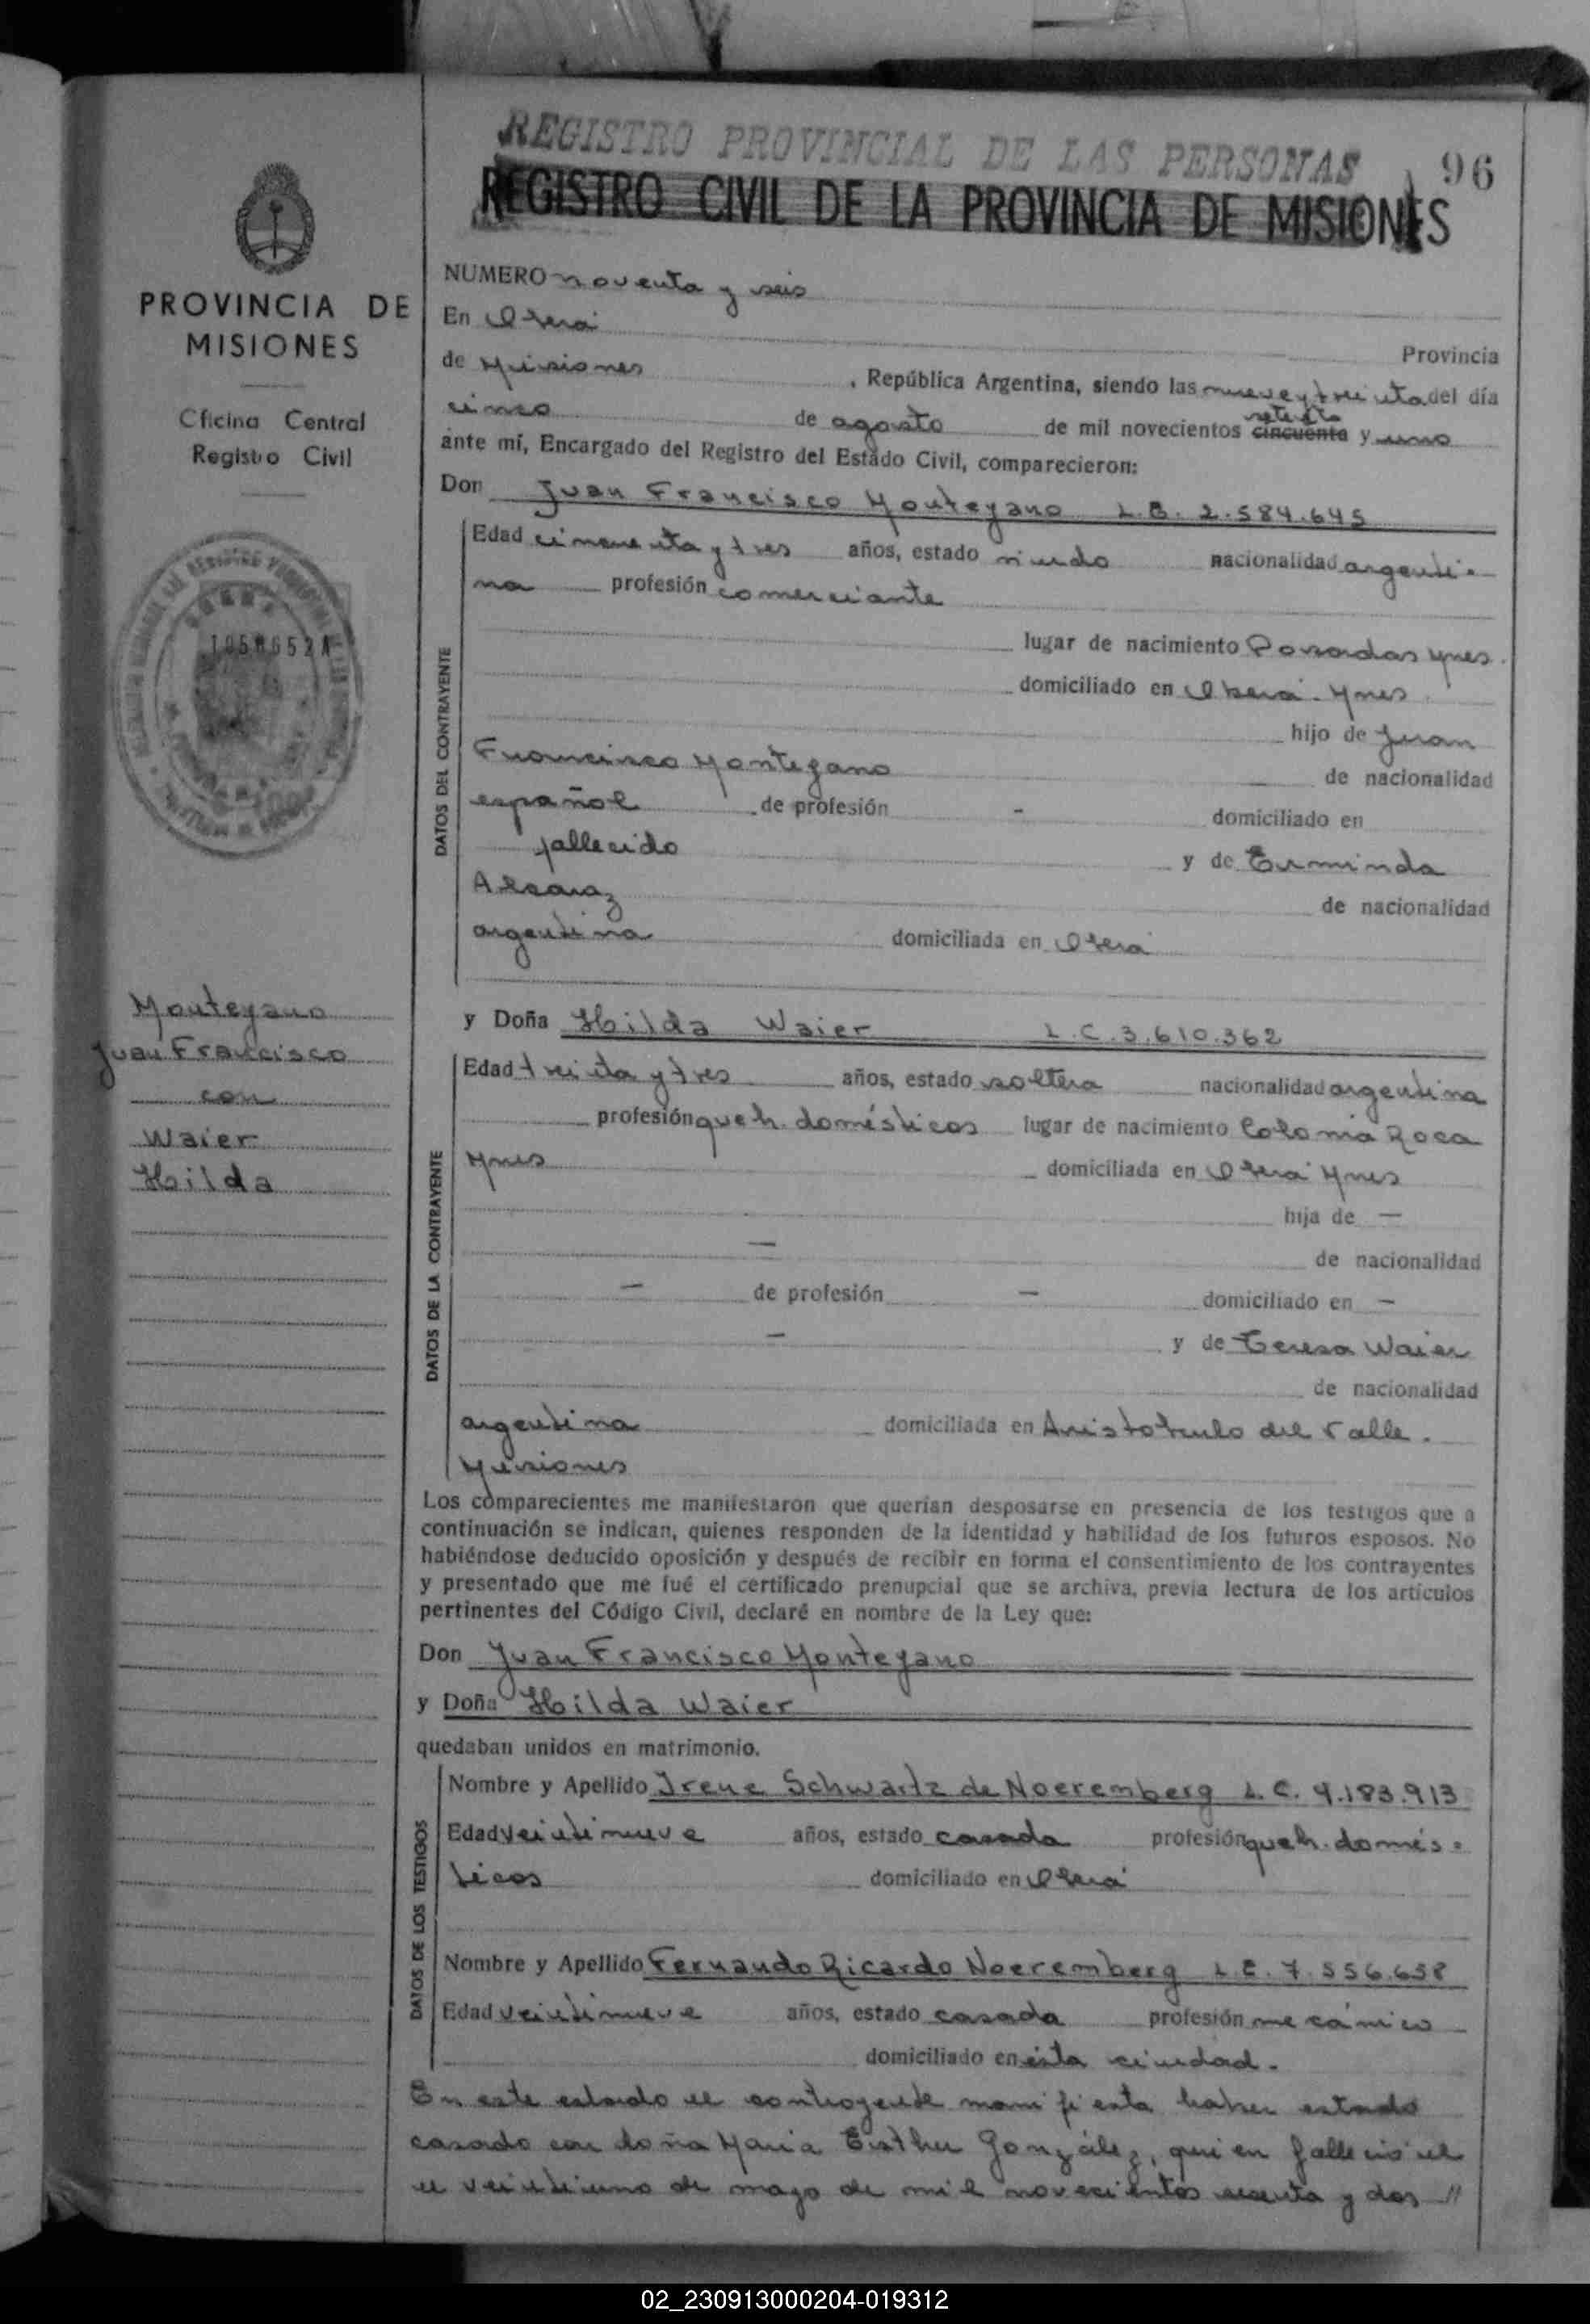 REGISTRO PROVINCIAL DE LAS PERSONAS
96
REGISTRO CIVIL DE LA PROVINCIA DE MISIONES
PROVINCIA DE
MISIONES
Oficina Central
Registro Civil
1058652A
Monteyano
Juan Francisco
con
Waier
Hilda
NUMERO noventa y seis
En Oberá
Provincia
de Misiones, República Argentina, siendo las nueve y treinta del día
setenta
cinco de agosto de mil novecientos cincuenta y uno
ante mí, Encargado del Registro del Estado Civil, comparecieron:
Don Juan Francisco Monteyano L.E. 2.584.645
DATOS DEL CONTRAYENTE
Edad cincuenta y tres años, estado viudo nacionalidad argenti-
na profesión comerciante
lugar de nacimiento Posadas Mnes.
domiciliado en Oberá. Mnes
hijo de Juan
Francisco Monteyano de nacionalidad
español de profesión - domiciliado en
fallecido y de Erminda
Alcaraz de nacionalidad
argentina domiciliada en Oberá
y Doña Hilda Waier L.C. 3.610.362
DATOS DE LA CONTRAYENTE
Edad treinta y tres años, estado soltera nacionalidad argentina
profesión queh. domésticos lugar de nacimiento Colonia Roca
Mnes domiciliada en Oberá Mnes
hija de —
— de nacionalidad
— de profesión — domiciliado en —
— y de Teresa Waier
de nacionalidad
argentina domiciliada en Aristobulo del Valle.
Misiones
Los comparecientes me manifestaron que querían desposarse en presencia de los testigos que a
continuación se indican, quienes responden de la identidad y habilidad de los futuros esposos. No
habiéndose deducido oposición y después de recibir en forma el consentimiento de los contrayentes
y presentado que me fué el certificado prenupcial que se archiva, previa lectura de los artículos
pertinentes del Código Civil, declaré en nombre de la Ley que:
Don Juan Francisco Monteyano
y Doña Hilda Waier
quedaban unidos en matrimonio.
DATOS DE LOS TESTIGOS
Nombre y Apellido Irene Schwartz de Noeremberg L.C. 4.183.913
Edad veintinueve años, estado casada profesión queh. domés-
ticos domiciliado en Oberá
Nombre y Apellido Fernando Ricardo Noeremberg L.E. 7.556.658
Edad veintinueve años, estado casado profesión mecánico
domiciliado en ésta ciudad.
En este estado el contrayente manifiesta haber estado
casado con doña María Esther González, quien falleció el
el veintiuno de mayo de mil novecientos sesenta y dos //
02_230913000204-019312